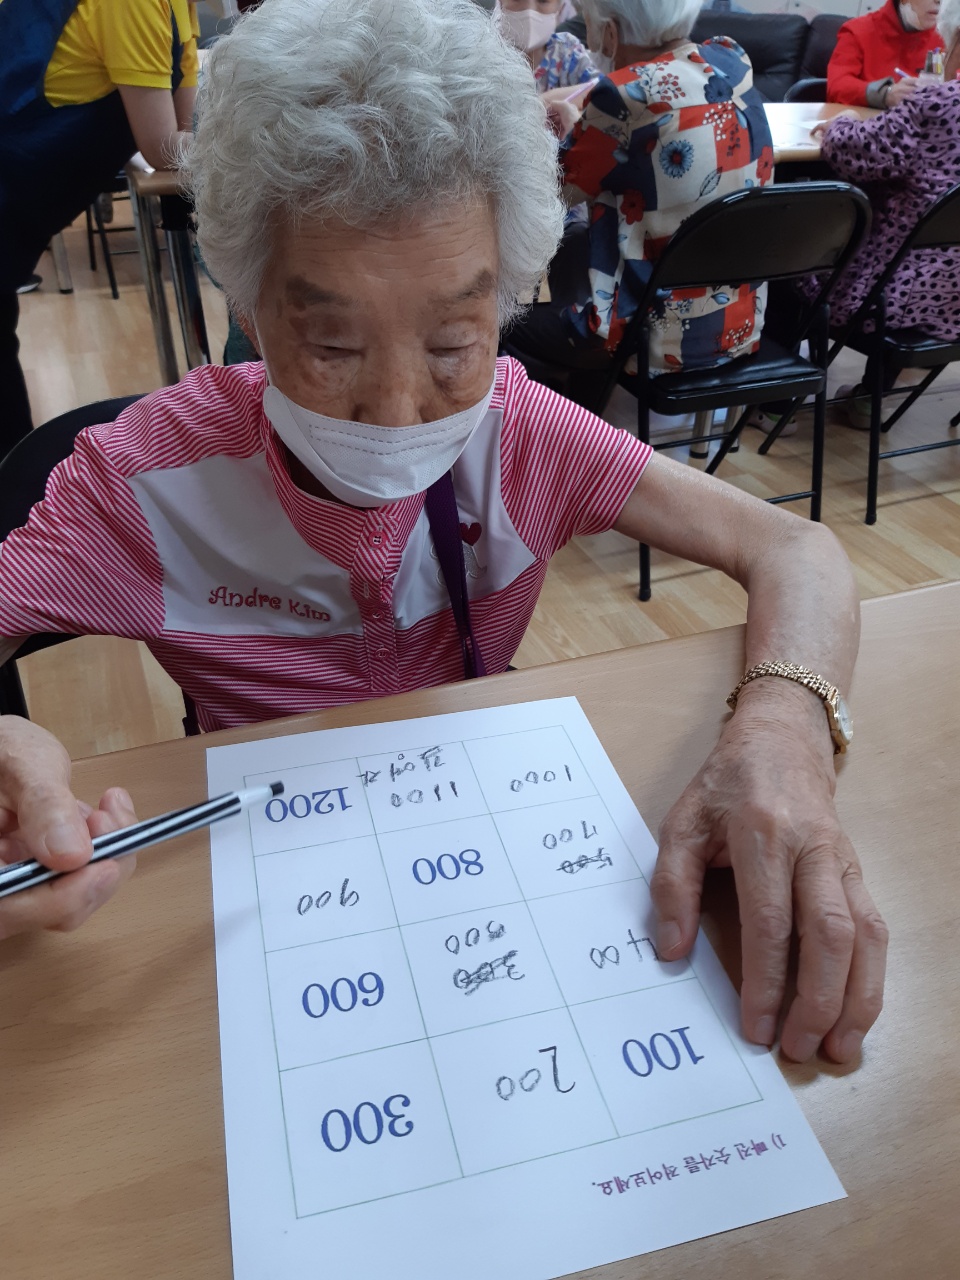 Andre Kim
1) 빠진 숫자를 적어보세요.
100 200 300
400 300 500 600
500 700 800 900
1000 1100 1200
김영자